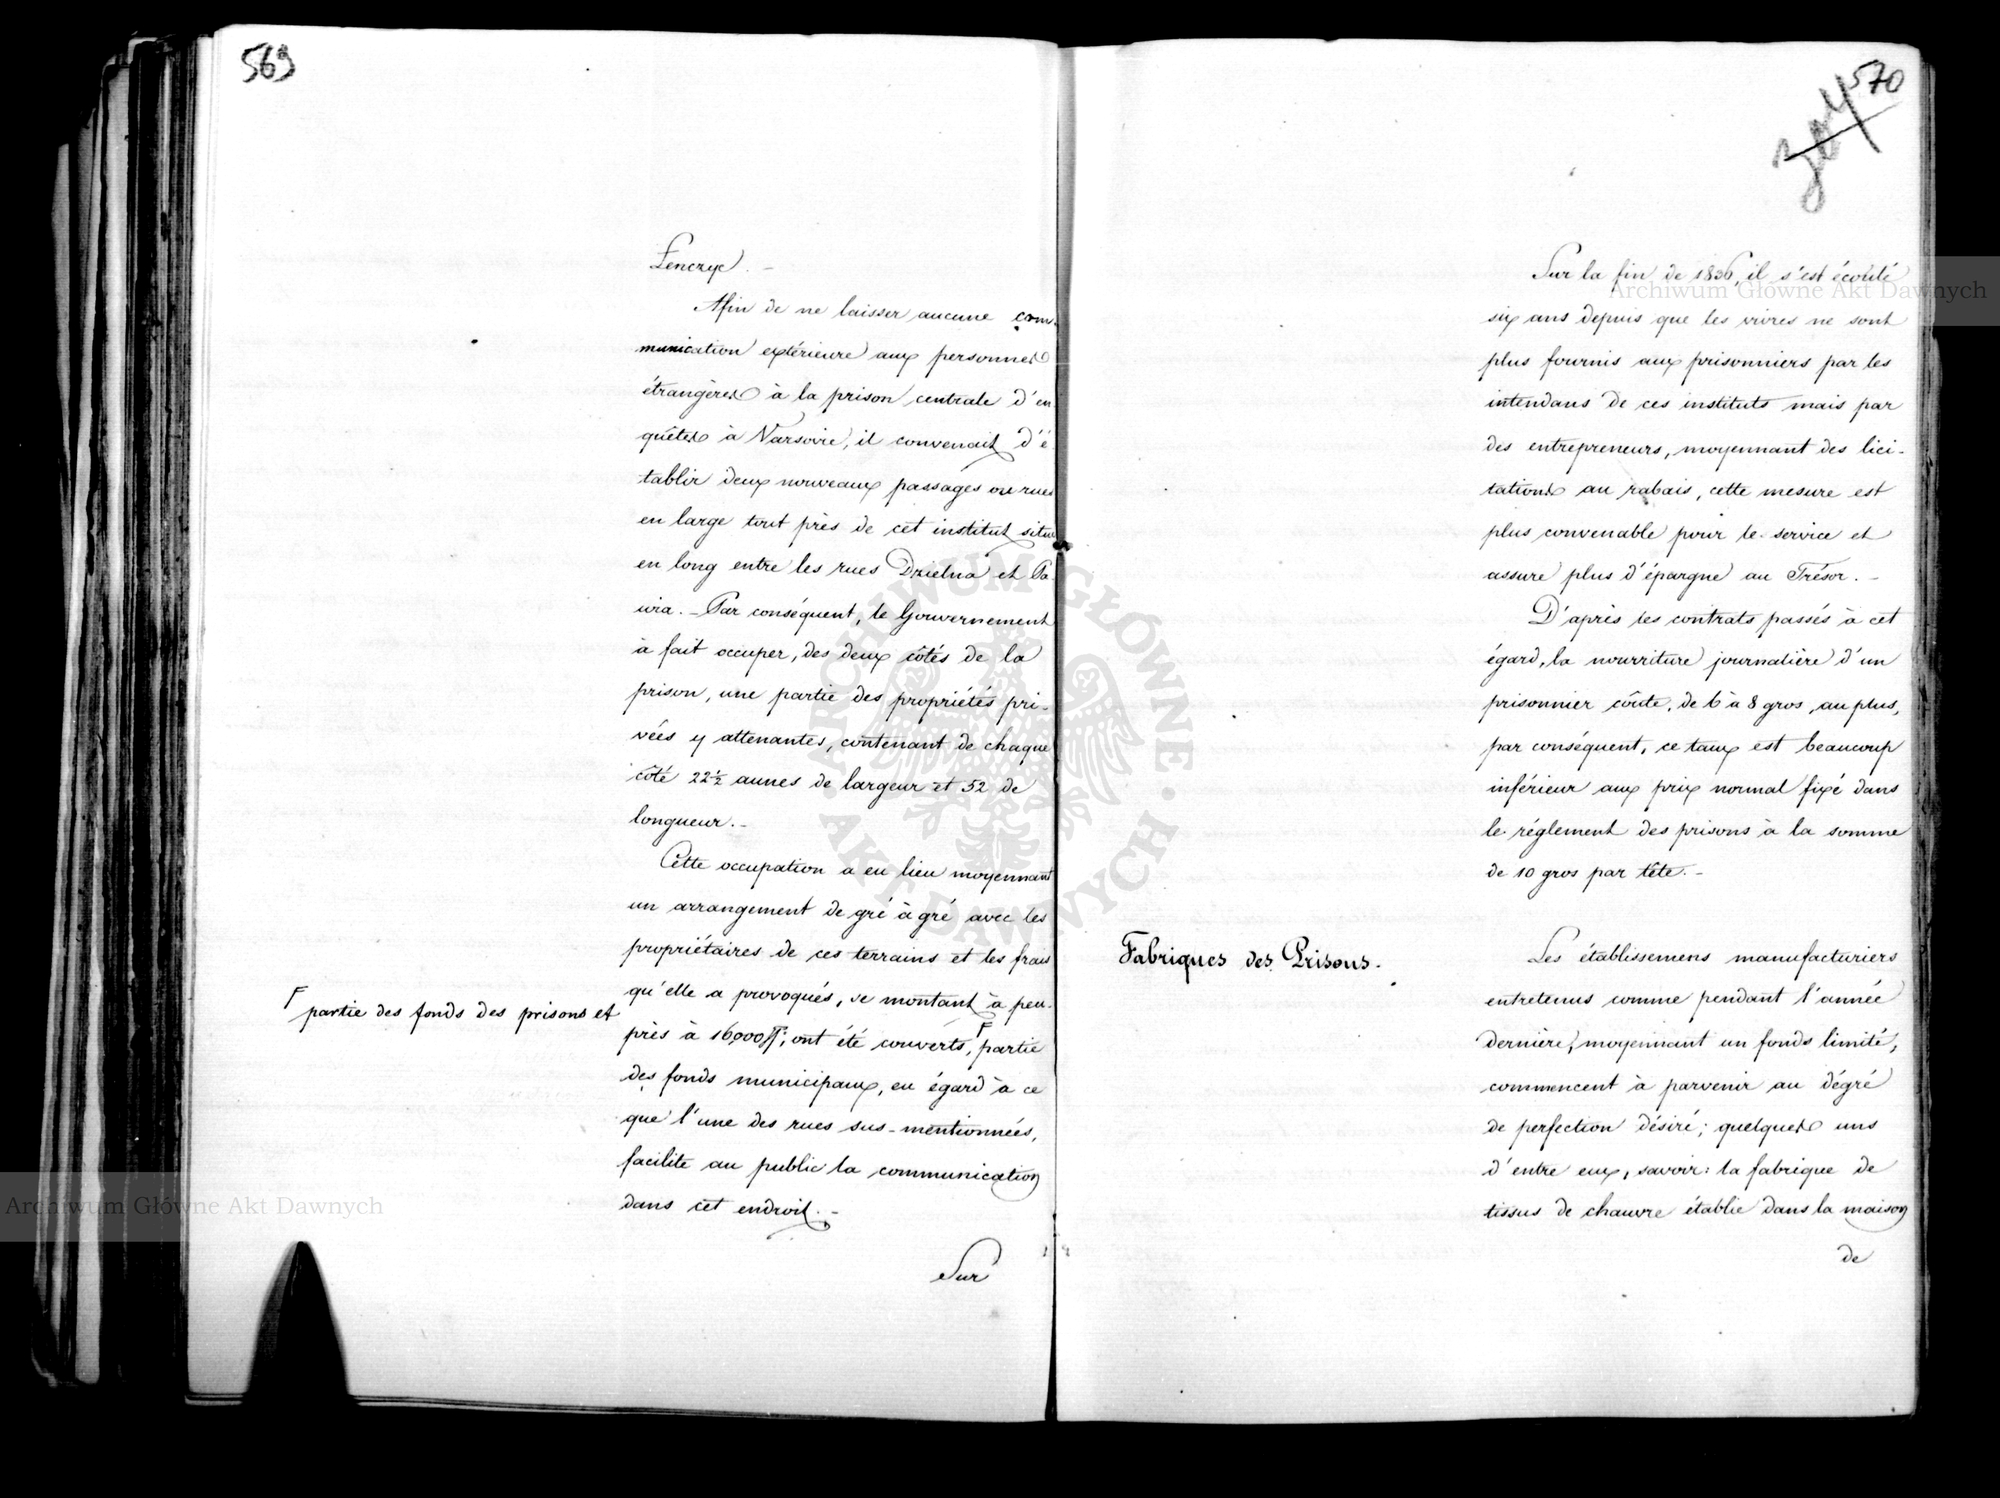 569
Lenczyc. –
Afin de ne laisser aucune com-
munication extérieure aux personnes
étrangères à la prison centrale d'en-
quêtes à Varsovie, il convenait d'é-
tablir deux nouveaux passages ou rues
en large tout près de cet institut situé
en long entre les rues Dzielna et Pa-
wia. – Par conséquent, le Gouvernement
à fait occuper, des deux côtés de la
prison, une partie des propriétés pri-
vées y attenantes, contenant de chaque
côté 22½ aunes de largeur et 52 de
longueur. –
Cette occupation a eu lieu moyennant
un arrangement de gré à gré avec les
propriétaires de ces terrains et les frais
qu'elle a provoqués, se montant à peu-
près à 16,000 ; ont été couverts, Γ partie
Γ partie des fonds des prisons et
des fonds municipaux, eu égard à ce
que l'une des rues sus-mentionnées,
facilite au public la communication
dans cet endroit. –
Sur
570
304
Sur la fin de 1836, il s'est écoulé
six ans depuis que les vivres ne sont
plus fournis aux prisonniers par les
intendans de ces instituts mais par
des entrepreneurs, moyennant des lici-
tations au rabais, cette mesure est
plus convenable pour le service et
assure plus d'épargne au Trésor. –
D'après les contrats passés à cet
égard, la nourriture journalière d'un
prisonnier coûte, de 6 à 8 gros, au plus,
par conséquent, ce taux est beaucoup
inférieur aux prix normal fixé dans
le réglement des prisons à la somme
de 10 gros par tête. –
Fabriques des Prisons.
Les établissemens manufacturiers
entretenus comme pendant l'année
dernière, moyennant un fonds limité,
commencent à parvenir au dégré
de perfection désiré; quelques uns
d'entre eux, savoir: la fabrique de
tissus de chauvre établie dans la maison
de
Archiwum Główne Akt Dawnych
Archiwum Główne Akt Dawnych
ARCHIWUM GŁÓWNE · AKT DAWNYCH ·